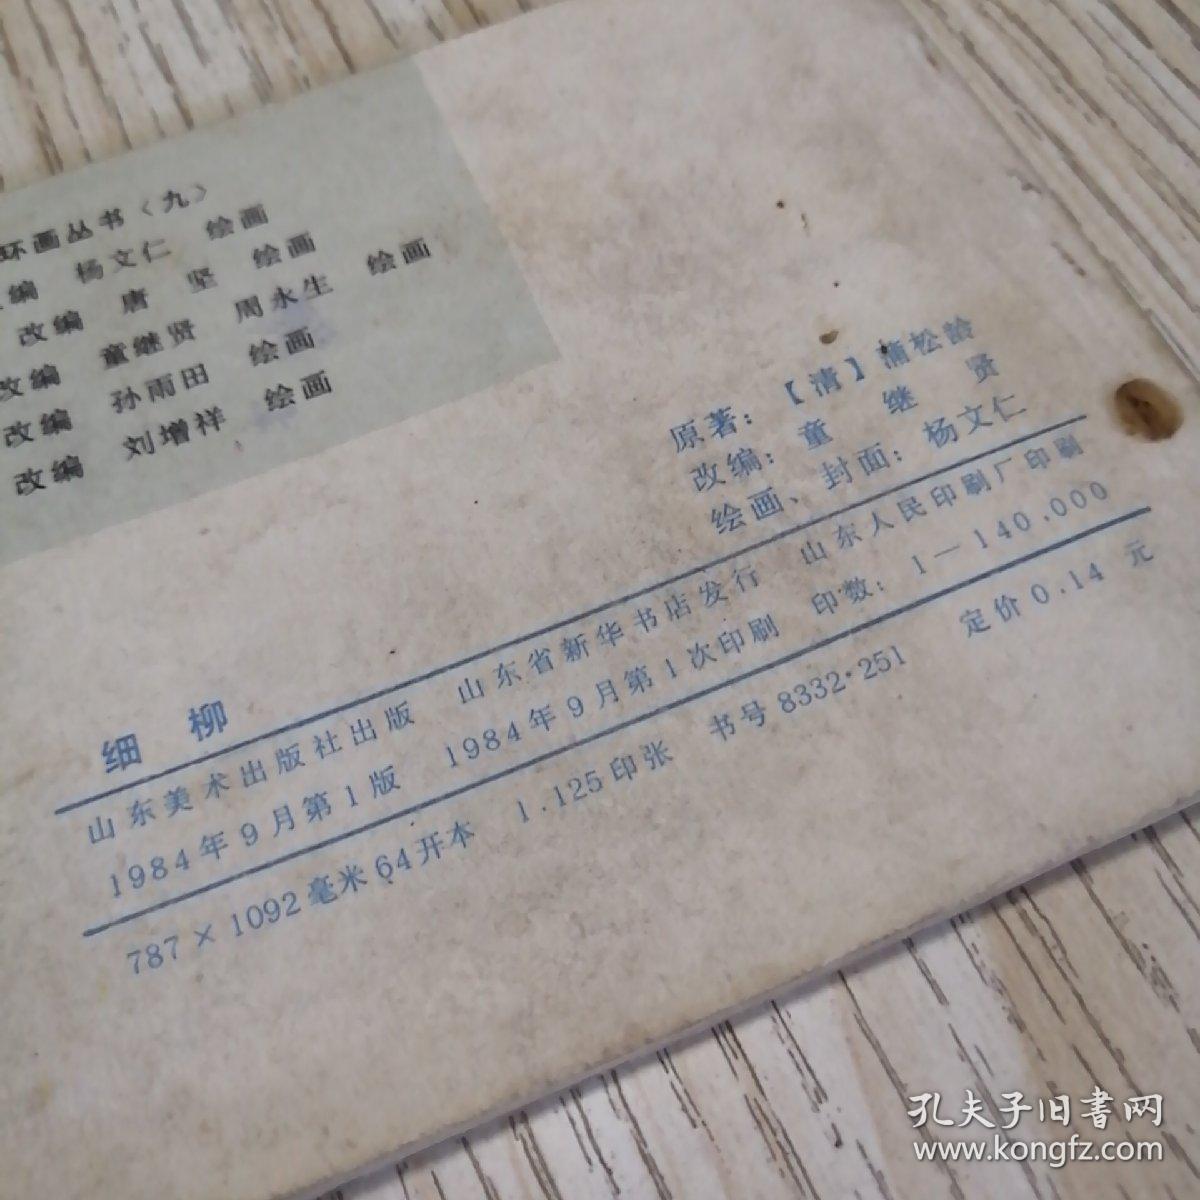 环画丛书〈九〉
编 杨文仁 绘画
改编 唐 坚 绘画
改编 童继贤 周永生 绘画
改编 孙雨田 绘画
改编 刘增祥 绘画
原著：【清】蒲松龄
改编：童继贤
绘画、封面：杨文仁
细柳
山东美术出版社出版 山东省新华书店发行 山东人民印刷厂印刷
1984年9月第1版 1984年9月第1次印刷 印数：1—140.000
787×1092毫米64开本 1.125印张 书号8332·251 定价0.14元
孔夫子旧書网
www.kongfz.com